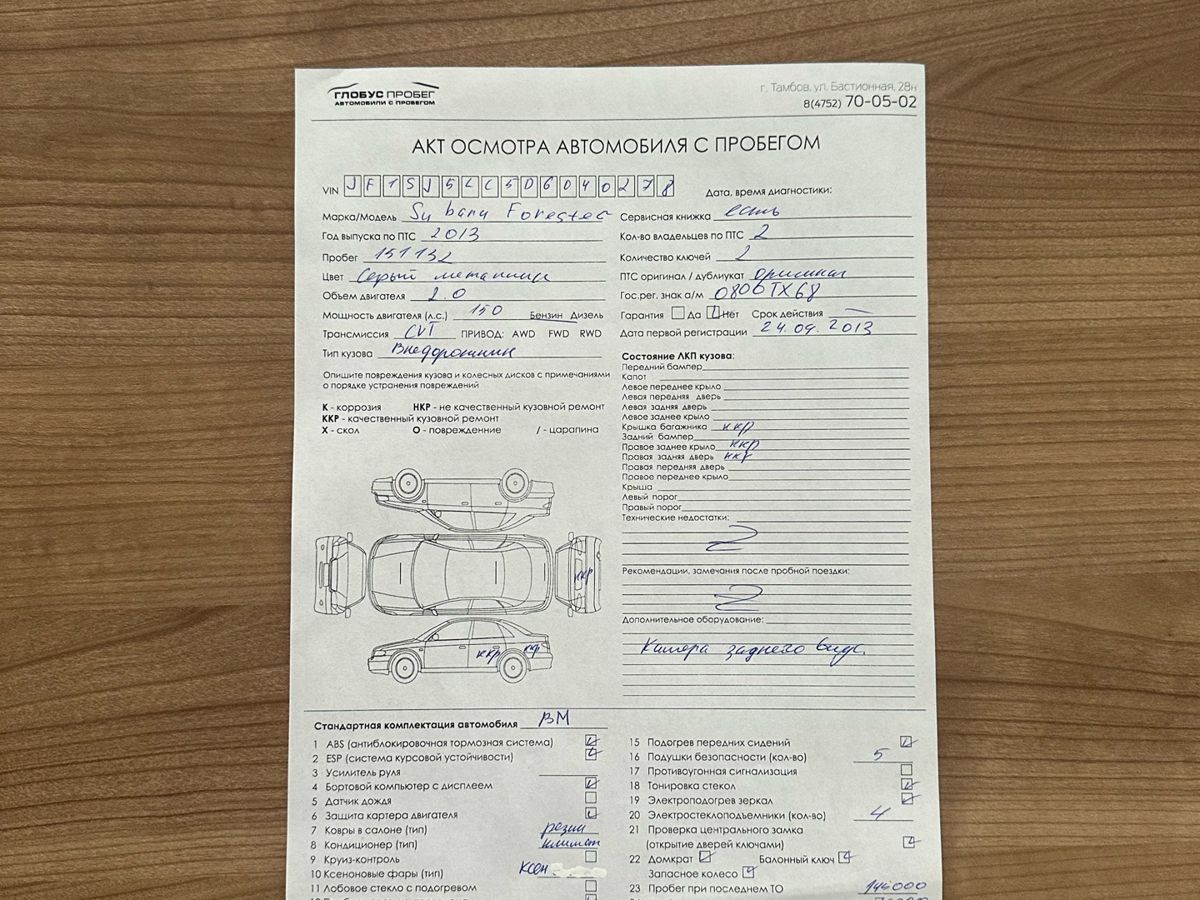 ГЛОБУС ПРОБЕГ
АВТОМОБИЛИ С ПРОБЕГОМ
г. Тамбов, ул. Бастионная, 28н
8(4752) 70-05-02
АКТ ОСМОТРА АВТОМОБИЛЯ С ПРОБЕГОМ
VIN JF1SJ5LC5DG040278
Дата, время диагностики:
Марка/Модель Subaru Forester
Год выпуска по ПТС 2013
Пробег 151132
Цвет Серый металлик
Объем двигателя 2.0
Мощность двигателя (л.с.) 150 Бензин Дизель
Трансмиссия CVT ПРИВОД: AWD FWD RWD
Тип кузова Внедорожник
Сервисная книжка есть
Кол-во владельцев по ПТС 2
Количество ключей 2
ПТС оригинал / дубликат оригинал
Гос.рег. знак а/м О800ТХ68
Гарантия Да Нет Срок действия —
Дата первой регистрации 24.09.2013
Опишите повреждения кузова и колесных дисков с примечаниями
о порядке устранения повреждений
К - коррозия НКР - не качественный кузовной ремонт
ККР - качественный кузовной ремонт
Х - скол О - повреждение / - царапина
Состояние ЛКП кузова:
Передний бампер
Капот
Левое переднее крыло
Левая передняя дверь
Левая задняя дверь
Левое заднее крыло
Крышка багажника ккр
Задний бампер
Правое заднее крыло ккр
Правая задняя дверь ккр
Правая передняя дверь
Правое переднее крыло
Крыша
Левый порог
Правый порог
Технические недостатки:
Рекомендации, замечания после пробной поездки:
Дополнительное оборудование:
Камера заднего вида.
ккр
ккр ккр
Стандартная комплектация автомобиля ВМ
1 ABS (антиблокировочная тормозная система)
2 ESP (система курсовой устойчивости)
3 Усилитель руля
4 Бортовой компьютер с дисплеем
5 Датчик дождя
6 Защита картера двигателя
7 Ковры в салоне (тип) резин
8 Кондиционер (тип) климат
9 Круиз-контроль
10 Ксеноновые фары (тип) ксен
11 Лобовое стекло с подогревом
15 Подогрев передних сидений
16 Подушки безопасности (кол-во) 5
17 Противоугонная сигнализация
18 Тонировка стекол
19 Электроподогрев зеркал
20 Электростеклоподъемники (кол-во) 4
21 Проверка центрального замка
(открытие дверей ключами)
22 Домкрат Балонный ключ
Запасное колесо
23 Пробег при последнем ТО 146000